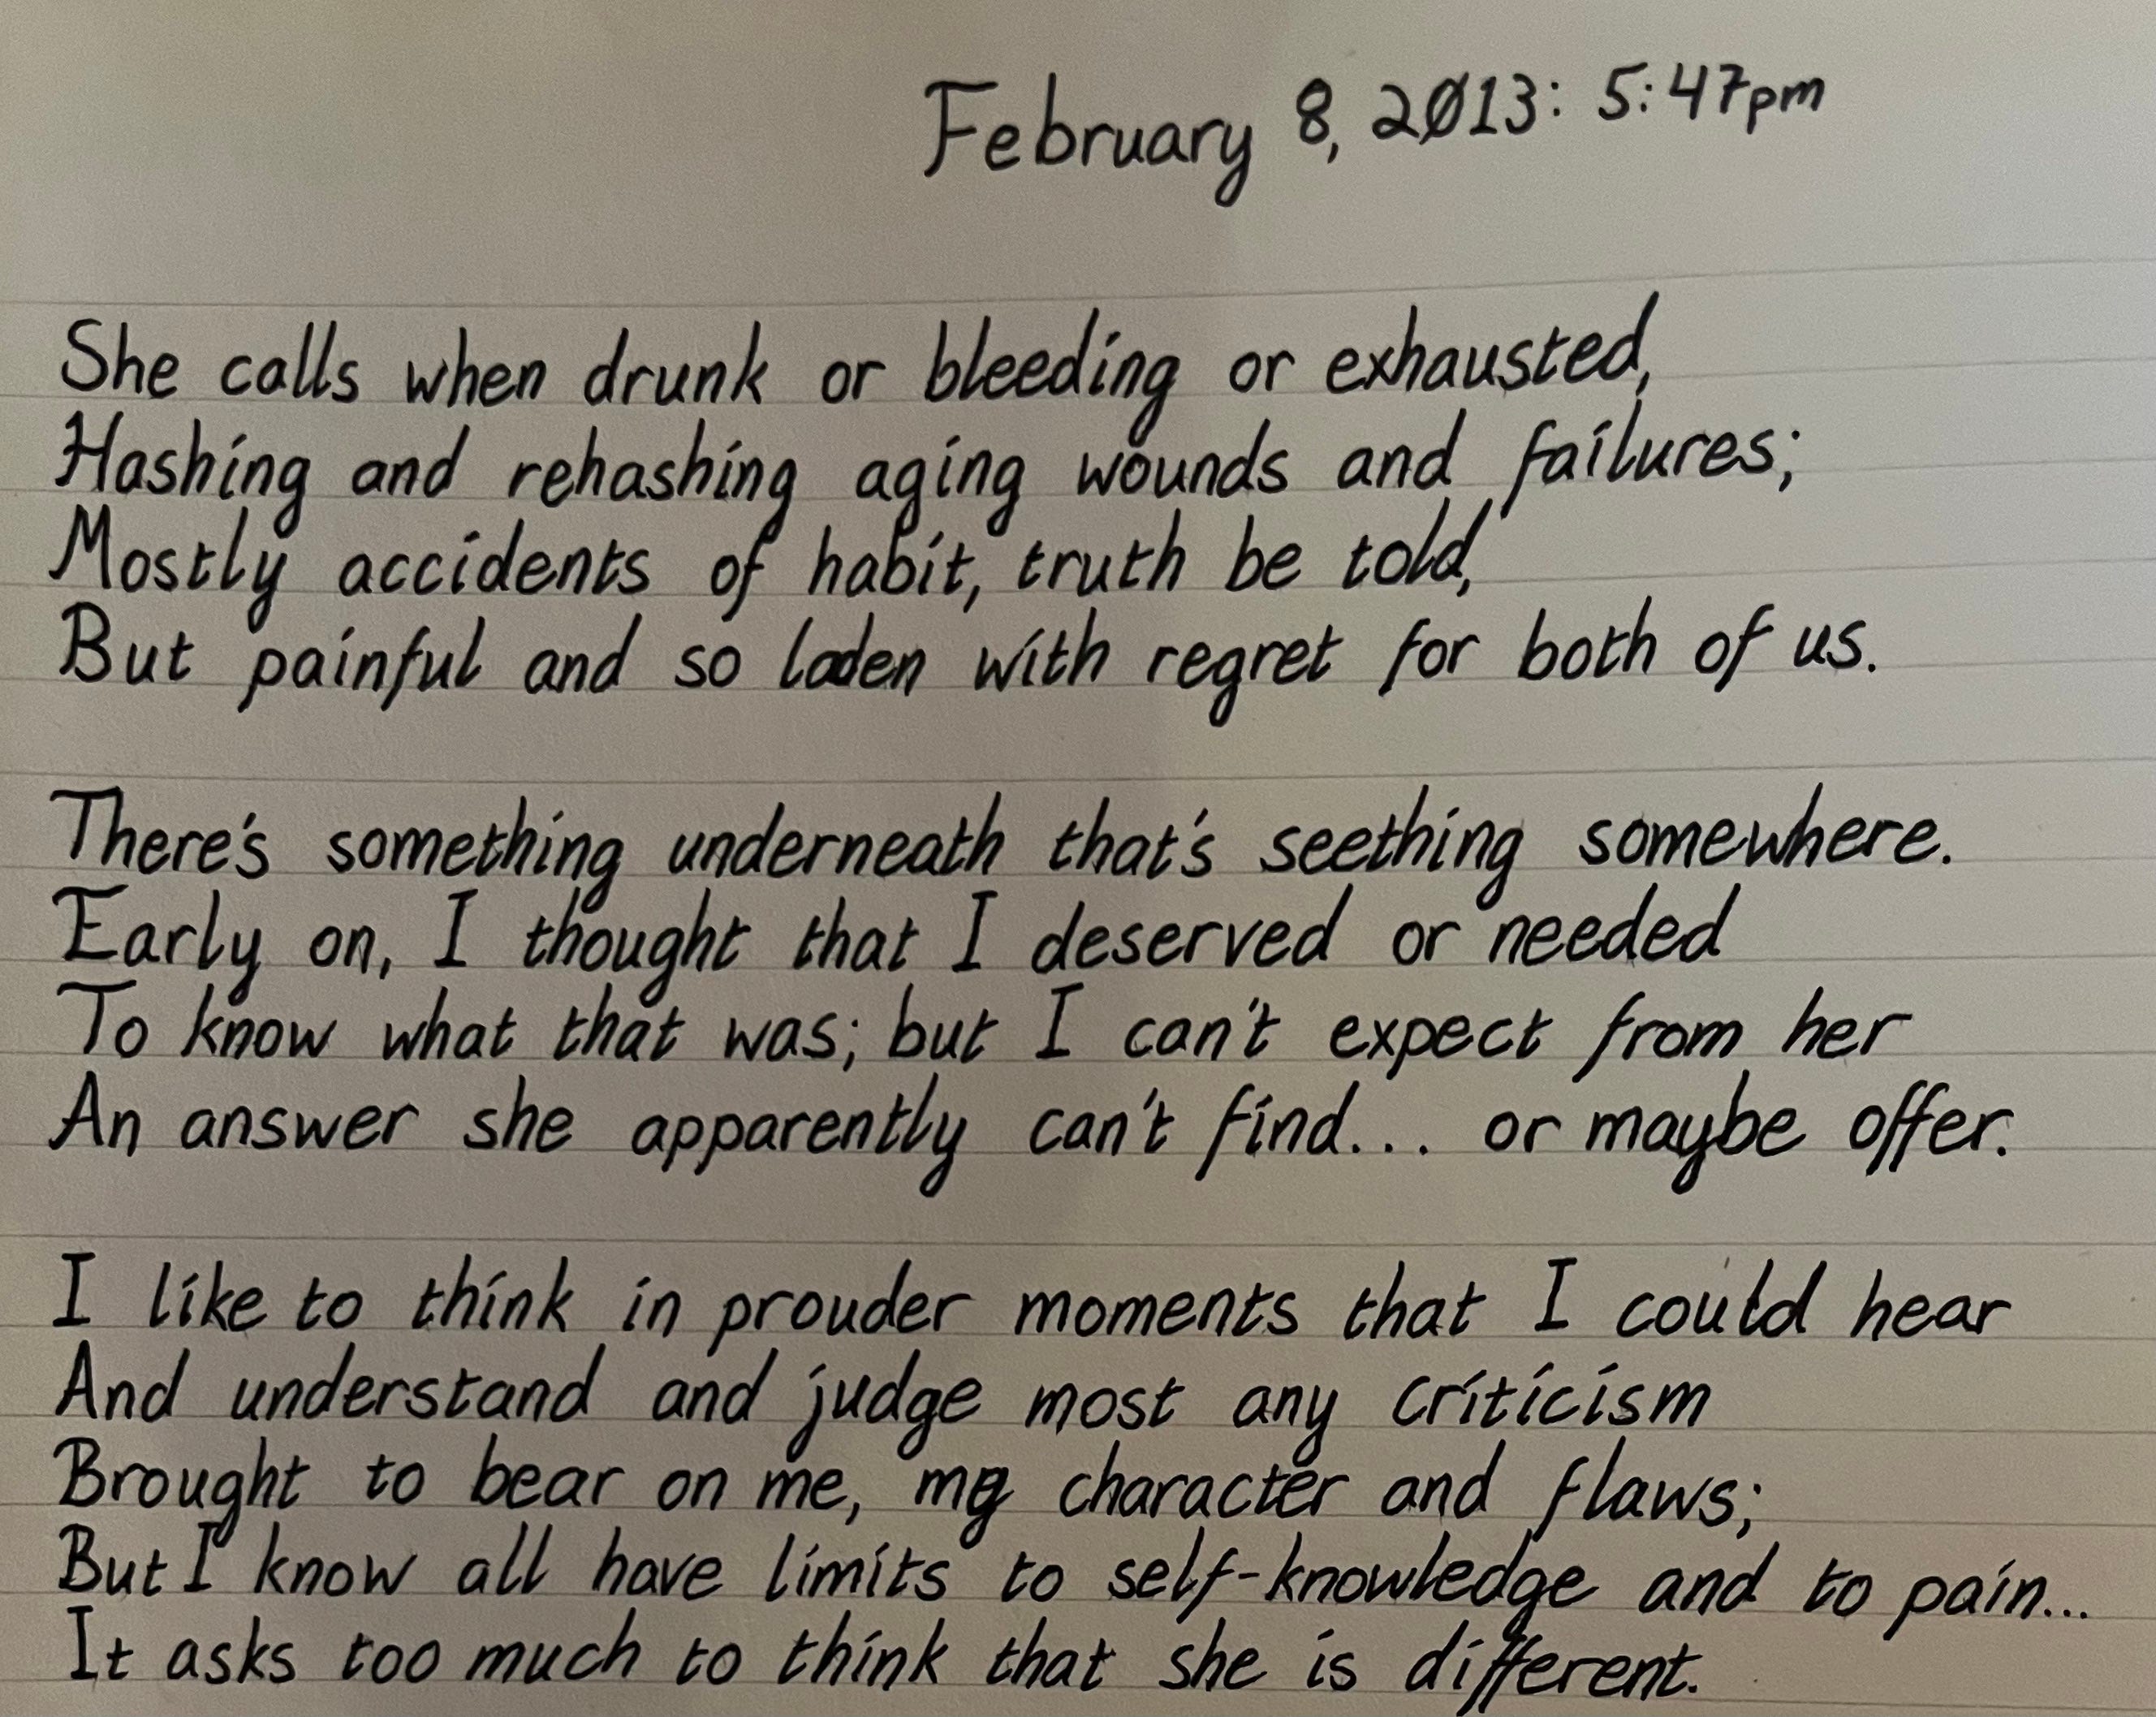 February 8, 2013: 5:47pm
She calls when drunk or bleeding or exhausted,
Hashing and rehashing aging wounds and failures;
Mostly accidents of habit, truth be told,
But painful and so laden with regret for both of us.
There's something underneath that's seething somewhere.
Early on, I thought that I deserved or needed
To know what that was; but I can't expect from her
An answer she apparently can't find... or maybe offer.
I like to think in prouder moments that I could hear
And understand and judge most any criticism
Brought to bear on me, my character and flaws;
But I know all have limits to self-knowledge and to pain...
It asks too much to think that she is different.